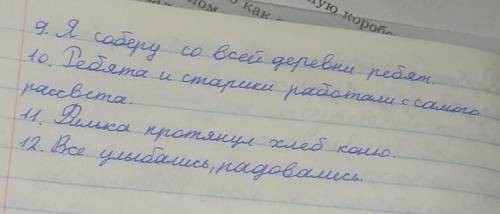 ную коробо
ном как
9. Я соберу со всей деревни ребят.
10. Ребята и старики работали с самого
рассвета.
11. Филька протянул хлеб коню.
12. Все улыбались, радовались.